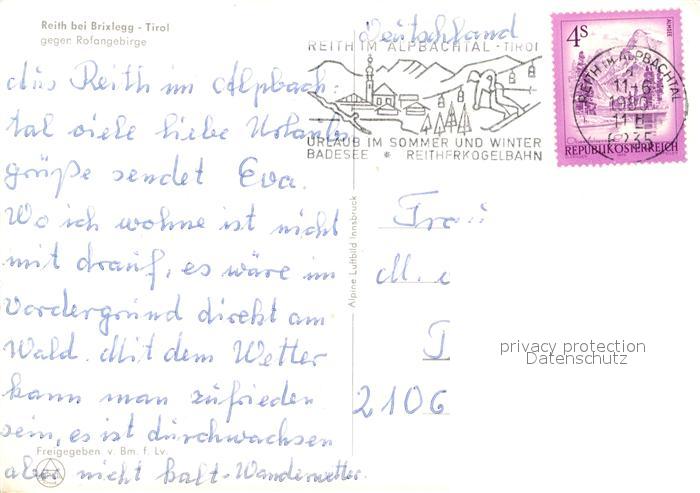 Reith bei Brixlegg - Tirol
gegen Rofangebirge
Deutschland
REITH IM ALPBACHTAL - TIROL
URLAUB IM SOMMER UND WINTER
BADESEE * REITHERKOGELBAHN
4S
ALMSEE
REPUBLIK ÖSTERREICH
REITH IM ALPBACHTAL
11-6
1980
11 H
6235
Aus Reith im Alpbach-
tal viele liebe Urlaubs
grüße sendet Eva.
Wo ich wohne ist nicht
mit drauf, es wäre im
Vordergrund direkt am
Wald. Mit dem Wetter
kann man zufrieden
sein, es ist durchwachsen
aber nicht kalt-Wanderwetter.
Freigegeben v. Bm. f. Lv.
Alpine Luftbild Innsbruck
Frau
M.
2106
privacy protection
Datenschutz